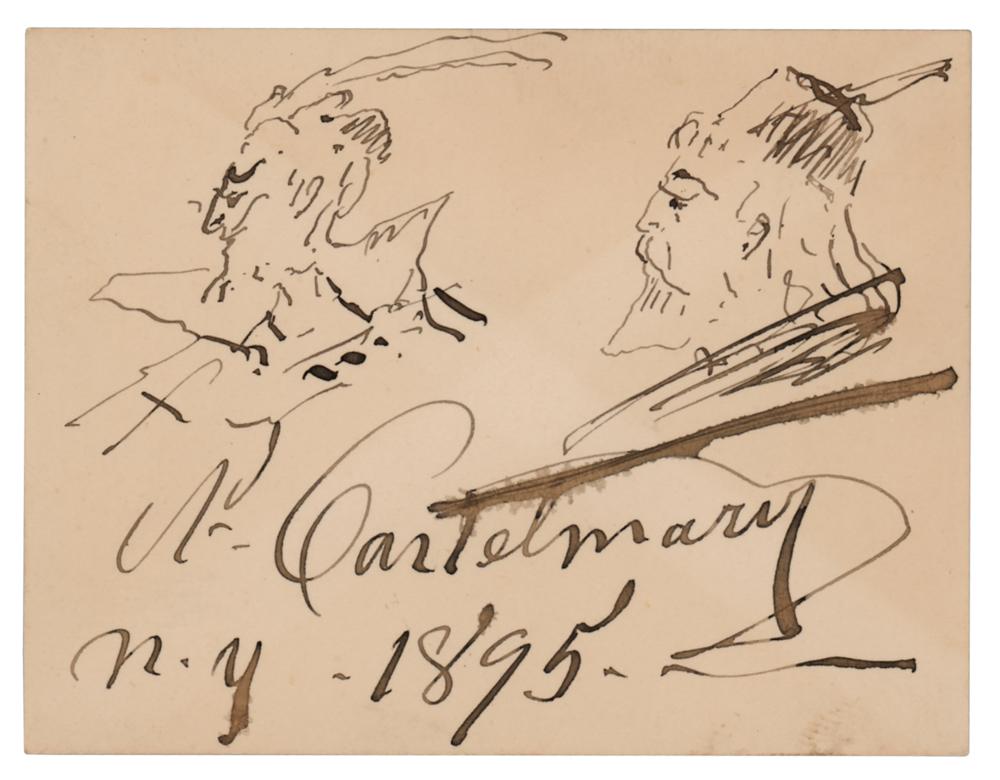 A. Castelmary
N. Y - 1895.